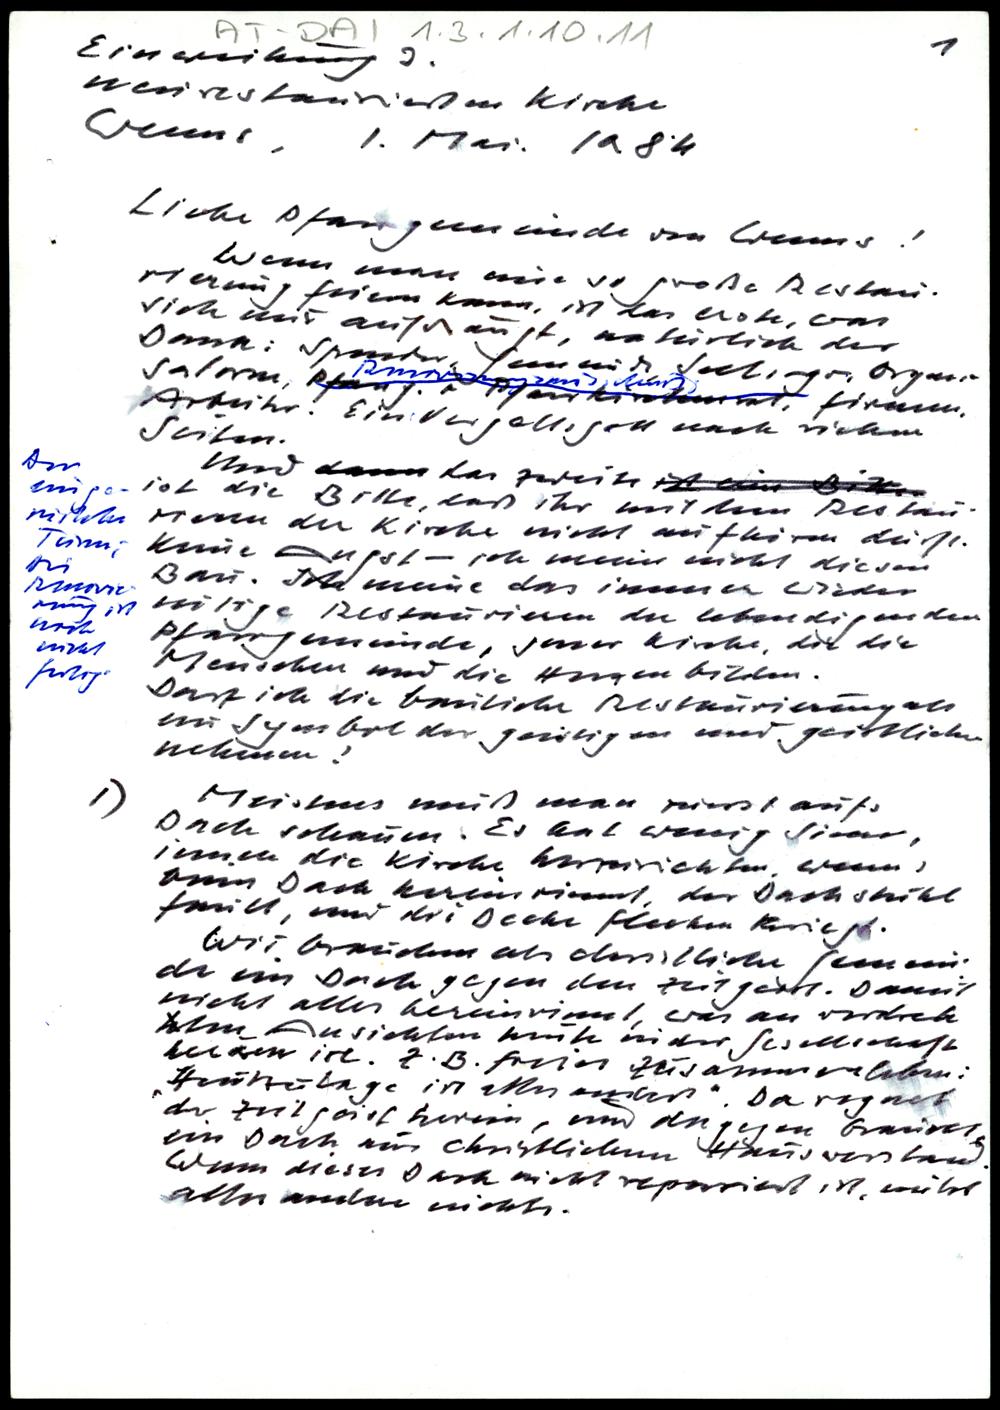 AT-DAI 1.3.1.10.11
1
Einweihung d.
neurestaurierten Kirche
Wenns, 1. Mai. 1984
Liebe Pfarrgemeinde von Wenns!
Wenn man eine so große Restau-
rierung feiern kann, ist das erste, was
sich mir aufdrängt, natürlich der
Dank: Spender, Gemeinde, Seelsorger, Organi-
Renovierungsausschuß
satoren, Pfarrg. u Pfarrkirchenrat, Firmen,
Arbeiter! Ein Vergeltsgott nach vielen
Seiten.
Und dann das zweite ist eine Bitte
ist die Bitte, daß ihr mit dem Restau-
rieren der Kirche nicht aufhören dürft.
Keine Angst – ich meine nicht diesen
Bau. Ich meine das immer wieder
nötige Restaurieren der lebendigen
Pfarrgemeinde, jener Kirche, die die
Menschen und die Herzen bilden.
Darf ich die bauliche Restaurierung als
ein Symbol der geistigen und geistlichen
nehmen!
Der
einge-
rüstete
Turm:
Die
Renovie-
rung ist
noch
nicht
fertig
1) Meistens muß man zuerst aufs
Dach schauen. Es hat wenig Sinn,
innen die Kirche herzurichten, wenns
beim Dach hereinrinnt, der Dachstuhl
fault, und die Decke Flecken kriegt.
Wir brauchen als christliche Gemein-
de ein Dach gegen den Zeitgeist. Damit
nicht alles hereinrinnt, was an verdreh
ten Ansichten heute in der Gesellschaft
ist. Z.B. freies Zusammenleben:
"Heutzutage ist alles anders". Da regnet
der Zeitgeist herein, und dagegen brauchts
ein Dach aus christlichem Hausverstand.
Wenn dieses Dach nicht repariert ist, nützt
alles andere nichts.